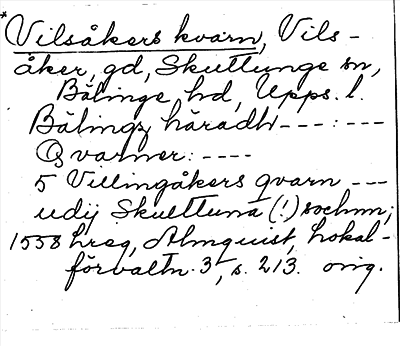 *Vilsåkers kvarn, Vils-
åker, gd, Skuttunge sn,
Bälinge hd, Upps. l.
Bälings häradh ---:---
Qvarner: ----
5 Villingåkers qvarn ---
udij Skulttuna (!) sochnn;
1558 hreg, Almquist, Lokal-
förvaltn. 3, s. 213. orig.